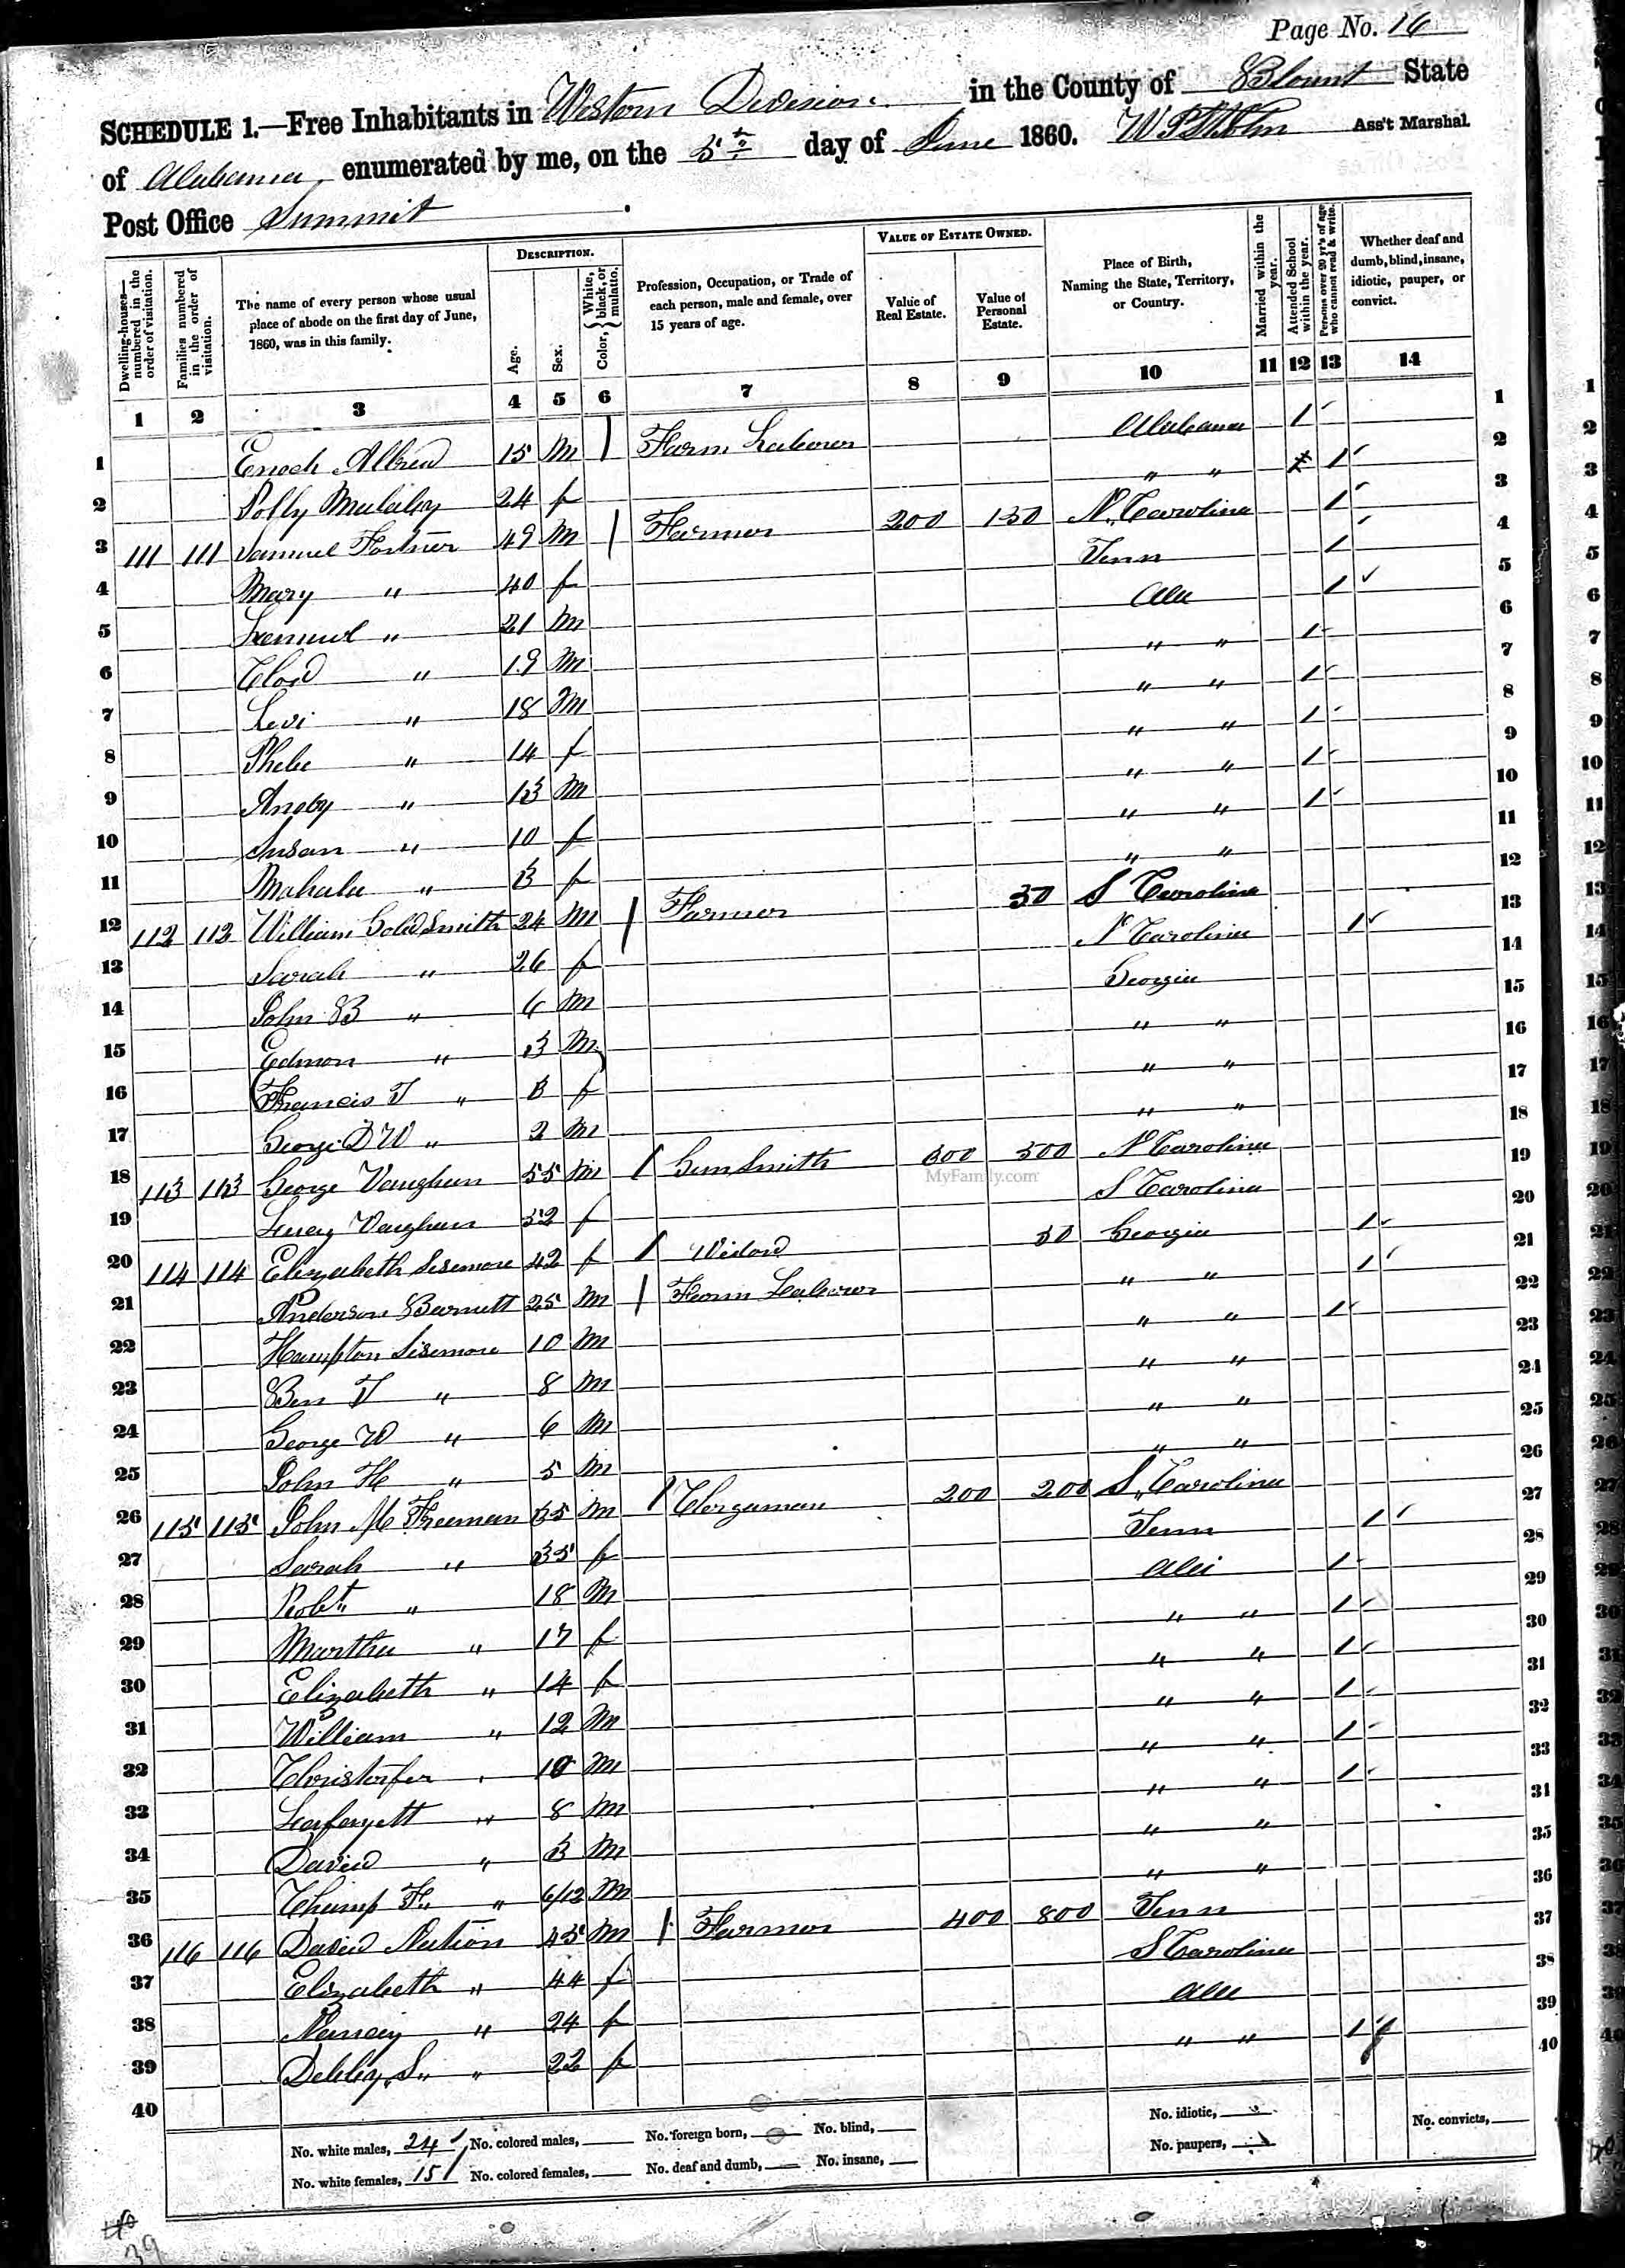 Page No. 16
SCHEDULE 1.—Free Inhabitants in Western Division in the County of Blount State
of Alabama, enumerated by me, on the 5th day of June 1860. Ass't Marshal.
Post Office Summit
Dwelling-houses—numbered in the order of visitation.
Families numbered in the order of visitation.
The name of every person whose usual place of abode on the first day of June, 1860, was in this family.
DESCRIPTION.
Age.
Sex.
Color, } White, black, or mulatto.
Profession, Occupation, or Trade of each person, male and female, over 15 years of age.
VALUE OF ESTATE OWNED.
Value of Real Estate.
Value of Personal Estate.
Place of Birth, Naming the State, Territory, or Country.
Married within the year.
Attended School within the year.
Persons over 20 yr's of age who cannot read & write.
Whether deaf and dumb, blind, insane, idiotic, pauper, or convict.
1 2 3 4 5 6 7 8 9 10 11 12 13 14
1 Enoch Allred 15 M 1 Farm Labour Alabama 1 1
2 Polly 24 f " " 1 2
3 111 111 Samuel Fortner 49 M 1 Farmer 200 150 N. Carolina 1 3
4 Mary " 40 f Tenn 1 4
5 Lemuel " 21 M Ala 1 5
6 " 19 M " " 1 6
7 Levi " 18 M " " 1 7
8 Phebe " 14 f " " 1 8
9 " 13 M " " 1 9
10 Susan " 10 f " " 1 10
11 Mahala " 3 f " " 11
12 112 112 William GoldSmith 24 M 1 Farmer 50 S Carolina 12
13 Sarah " 26 f N Carolina 1 13
14 John B " 6 M Georgia 14
15 Edmon " 3 M " " 15
16 Francis T " 3 f " " 16
17 George D W " 2 M " " 17
18 113 113 George Vaughan 55 M 1 Gun Smith 600 500 N Carolina 18
19 Lucy Vaughan 52 f S Carolina 19
20 114 114 Elizabeth Sisemore 42 f 1 Widow 50 Georgia 1 20
21 Anderson Barnett 25 M 1 Farm Labour " " 1 21
22 Hampton Sisemore 10 M " " 1 22
23 Ben T " 8 M " " 23
24 George W " 6 M " " 24
25 John H " 5 M " " 25
26 115 115 John M Freeman 35 M 1 Clergaman 200 200 S. Carolina 26
27 Sarah " 35 f Tenn 1 27
28 Robt " 18 M Ala 1 28
29 Martha " 17 f " " 1 29
30 Elizabeth " 14 f " " 1 30
31 William " 12 M " " 1 31
32 Christorfer " 10 M " " 1 32
33 Lafayett " 8 M " " 1 33
34 David " 3 M " " 34
35 Champ F. " 6/12 M " " 35
36 116 116 David Nation 45 M 1 Farmer 400 800 Tenn 36
37 Elizabeth " 44 f S Carolina 37
38 Nancy " 24 f Ala 38
39 Debby S. " 22 f " " 1 39
40 40
No. white males, 24 No. colored males, No. foreign born, No. blind, No. idiotic, No. convicts,
No. white females, 15 No. colored females, No. deaf and dumb, No. insane, No. paupers,
39
MyFamily.com